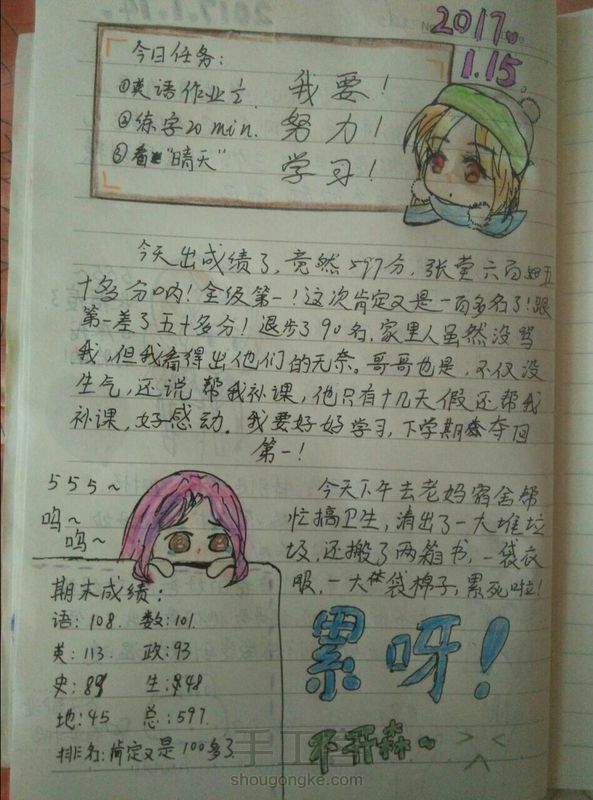 2017.
1.15.
今日任务:
①英语作业½.
②练字20 min.
③看"晴天"
我要!
努力!
学习!
今天出成绩了,竟然597分,张莹六百五
十多分呐!全级第一!这次肯定又是一百多名了!跟
第一差了五十多分!退步了90名,家里人虽然没骂
我,但我看得出他们的无奈。哥哥也是,不仅没
生气,还说帮我补课,他只有十几天假还帮我
补课,好感动.我要好好学习,下学期夺回
第一!
555~
呜~
呜~
期末成绩:
语:108. 数:101.
英:113. 政:93
史:89 生:48
地:45 总:597.
排名:肯定又是100多了.
今天下午去老妈宿舍帮
忙搞卫生,清出了一大堆垃
圾,还搬了两箱书,一袋衣
服,一大袋棉子,累死啦!
累呀!
不开森~ >_<
手工客
shougongke.com